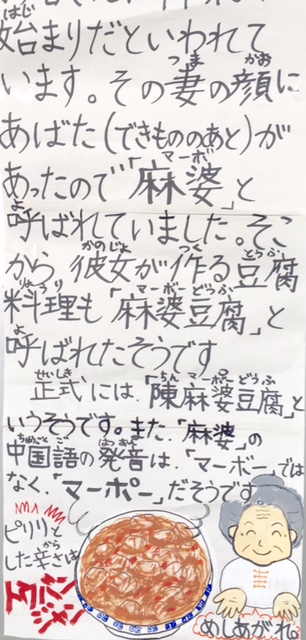 始まりだといわれて
います。その妻の顔に
あばた(できもののあと)が
あったので「麻婆」と
呼ばれていました。そこ
から 彼女が作る豆腐
料理も「麻婆豆腐」と
呼ばれたそうです
正式には、「陳麻婆豆腐」と
いうそうです。また、「麻婆」の
中国語の発音は、「マーボー」では
なく、「マーポー」だそうです
ピリリと
した辛さは
トウバン
ジャン
めしあがれ